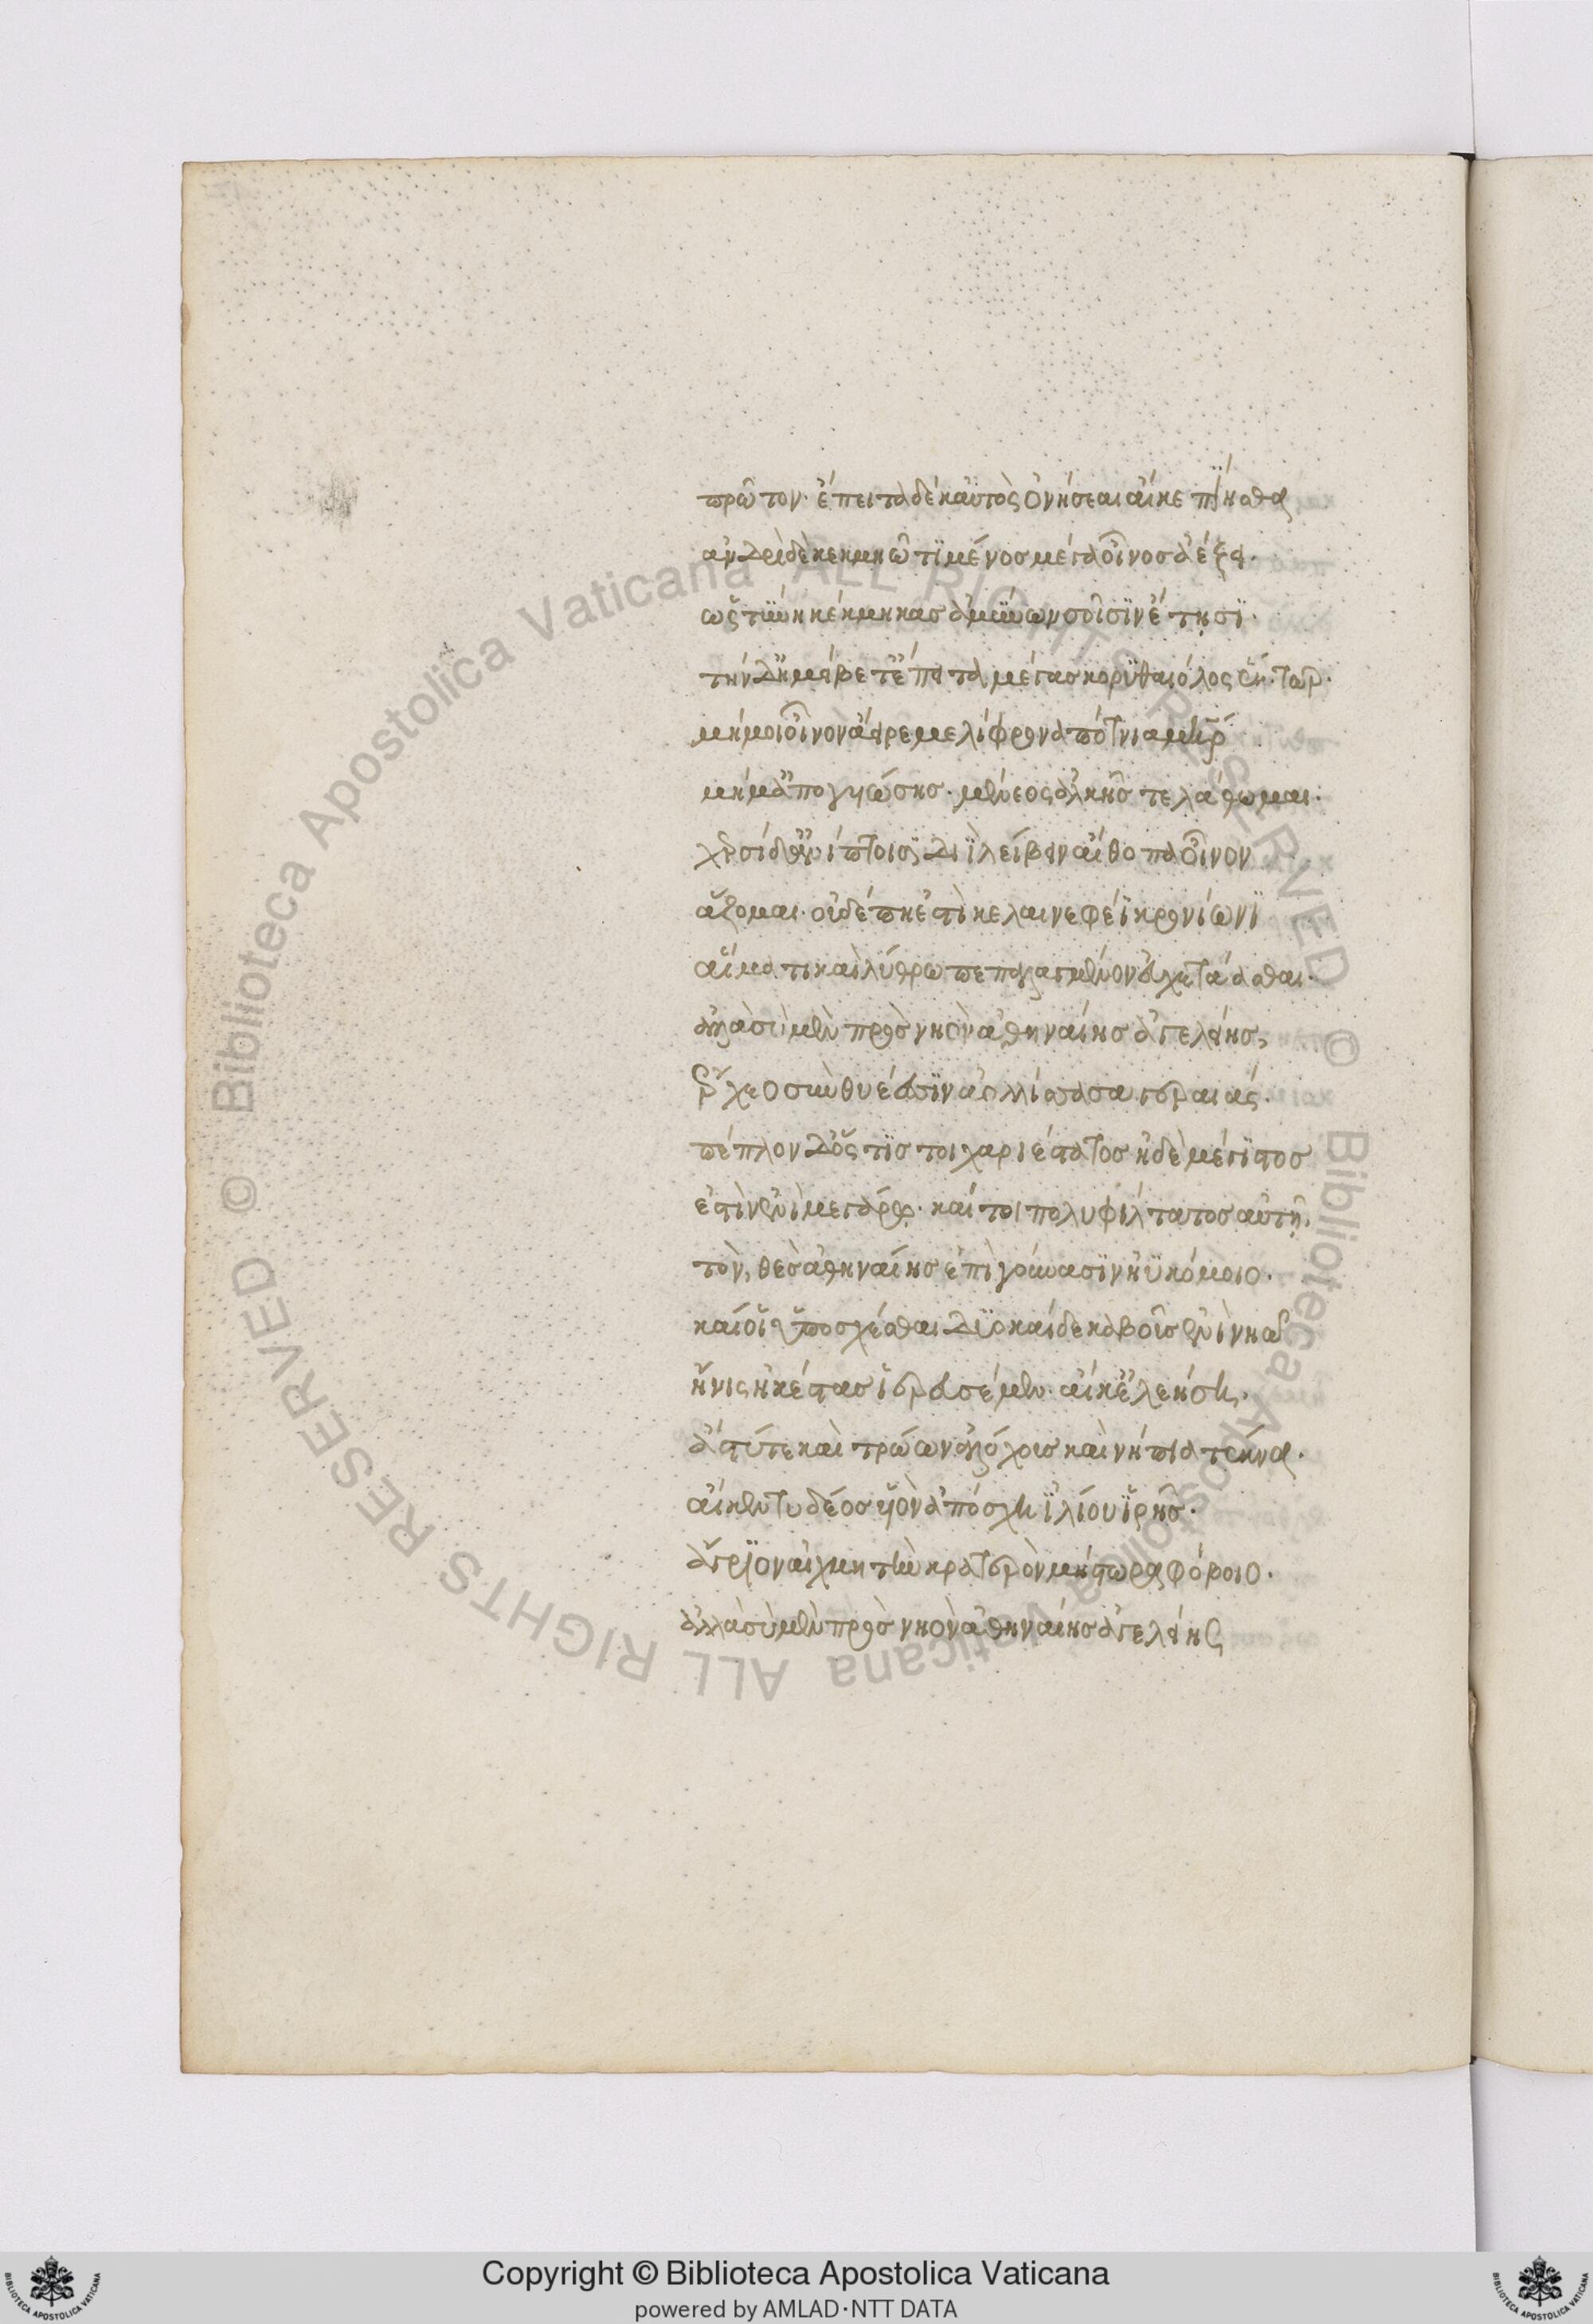 πρῶτον· ἔπειτα δὲ καὐτὸς ὀνήσεαι αἴκε πίῃσθα
ἀνδρὶ δὲ κεκμηῶτι μένος μέγα οἶνος ἀέξει·
ὡς τύνη κέκμηκας ἀμύνων σοῖσιν ἔτῃσι·
τὴν δ' ἠμείβετ' ἔπειτα μέγας κορυθαιόλος ἕκτωρ·
μή μοι οἶνον ἄειρε μελίφρονα πότνια μῆτερ
μή μ' ἀπογυιώσῃς· μένεος ἀλκῆς τε λάθωμαι·
χερσὶ δ' ἀνίπτοισι Διὶ λείβειν αἴθοπα οἶνον
ἅζομαι· οὐδέ πη ἐστὶ κελαινεφέϊ κρονίωνι
αἵματι καὶ λύθρω πεπαλαγμένον εὐχετάασθαι·
ἀλλὰ σὺ μὲν πρὸς νηὸν ἀθηναίης ἀγελείης,
ἔρχεο σὺν θυέεσσιν ἀολλίσσασα γεραιάς·
πέπλον δ' ὅς τίς τοι χαριέστατος ἠδὲ μέγιστος
ἐστὶν ἐνὶ μεγάρῳ· καί τοι πολὺ φίλτατος αὐτῇ,
τὸν, θὲς ἀθηναίης ἐπὶ γούνασιν ἠϋκόμοιο·
καί οἱ ὑποσχέσθαι δυοκαίδεκα βοῦς ἐνὶ νηῷ
ἤνις ἠκέστας ἱερευσέμεν· αἴκ' ἐλεήσῃ·
ἄστύ τε καὶ τρώων ἀλόχους καὶ νήπια τέκνα·
αἴκεν τυδέος υἱὸν ἀπόσχῃ ἰλίου ἱρῆς·
ἄγριον αἰχμητὴν κρατερὸν μήστωρα φόβοιο·
ἀλλὰ σὺ μὲν πρὸς νηὸν ἀθηναίης ἀγελείης
Copyright © Biblioteca Apostolica Vaticana
powered by AMLAD·NTT DATA